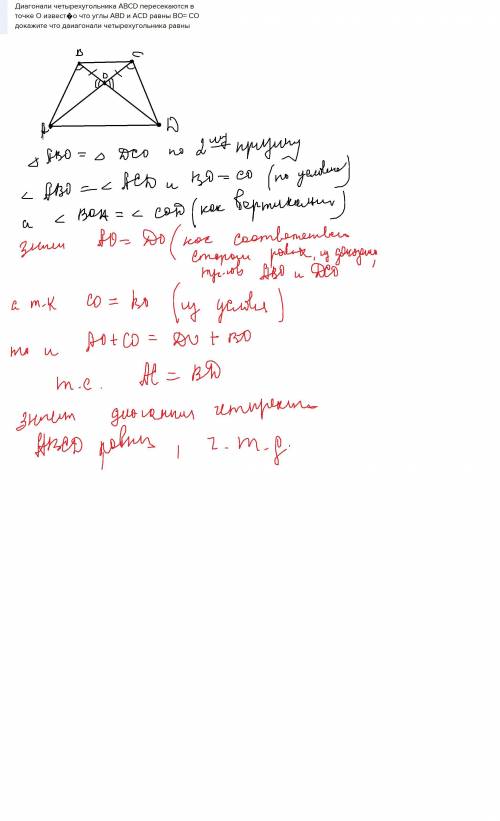 Диагонали четырехугольника ABCD пересекаются в
точке О извест�о что углы ABD и ACD равны BO= CO
докажите что даиагонали четырехугольника равны
B C
O
A D
△ ABO = △ DCO по 2 му признаку
∠ ABO = ∠ ACD и BO = CO (по условию)
а ∠ BOA = ∠ COD (как вертикальн)
значит AO = DO (как соответствен
стороны равных, из доказан
тр-ков ABO и DCO,
а т.к CO = BO (из условия)
то и AO + CO = DO + BO
т.е. AC = BD
значит диагонали четырехуг
ABCD равны, ч.т.д.